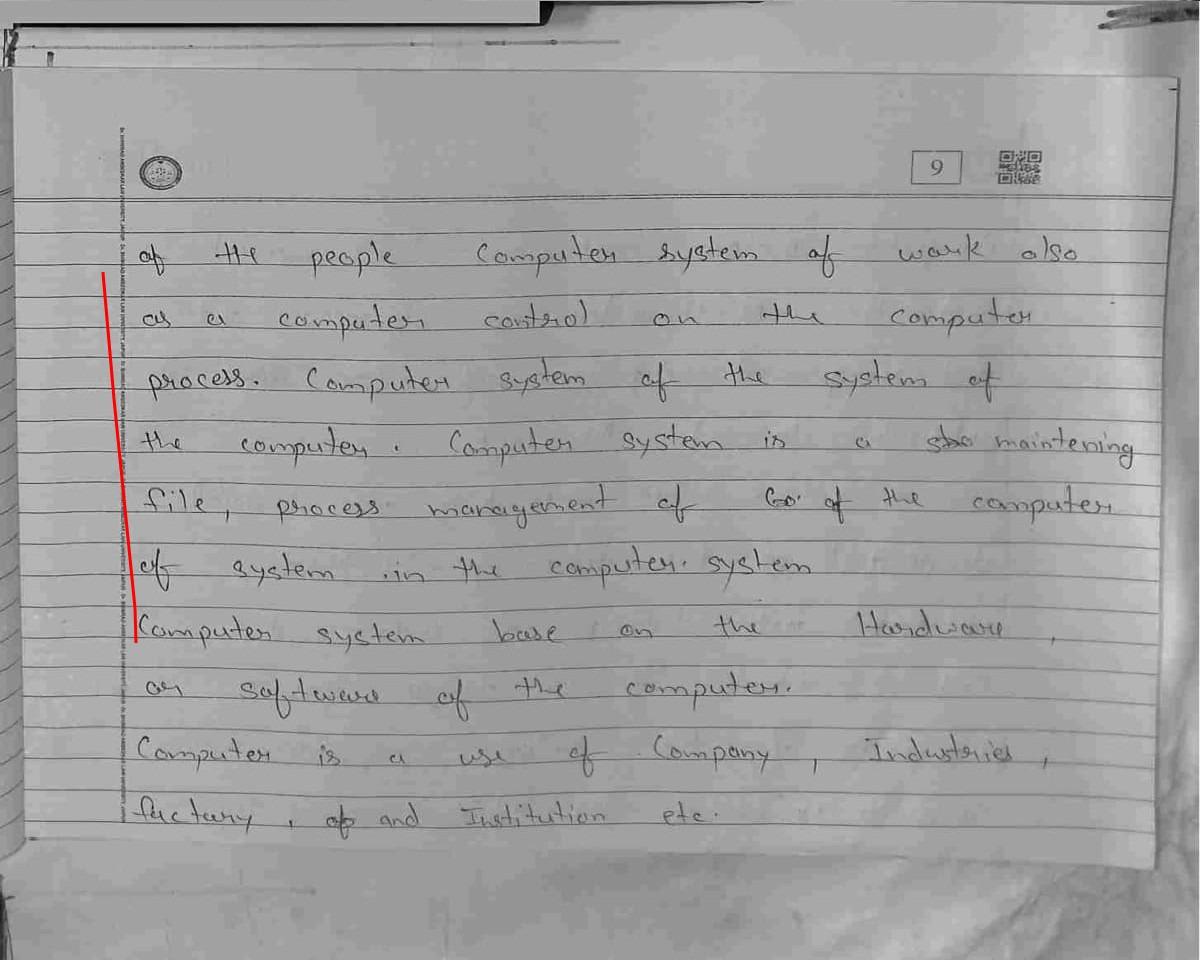 9
of the people Computer system of work also
as a computer control on the computer
process. Computer system of the system of
the computer. Computer system is a maintening
file, process management of Go. of the computer
of system in the computer. system
Computer system base on the Hardware,
or software of the computer.
Computer is a use of Company, Industries,
factory, and Institution etc.